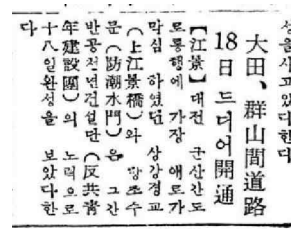 성을사고있다한다
大田、群山間道路
18日 드디어開通
【江景】대전 군산간도
로통행에 가장 애로가
막심 하였던 상강경교
(上江景橋)와 당조수
문(防潮水門)은 그간
반공청년건설단(反共靑
年建設團)의 노력으로
十八일완성을 보았다한
다